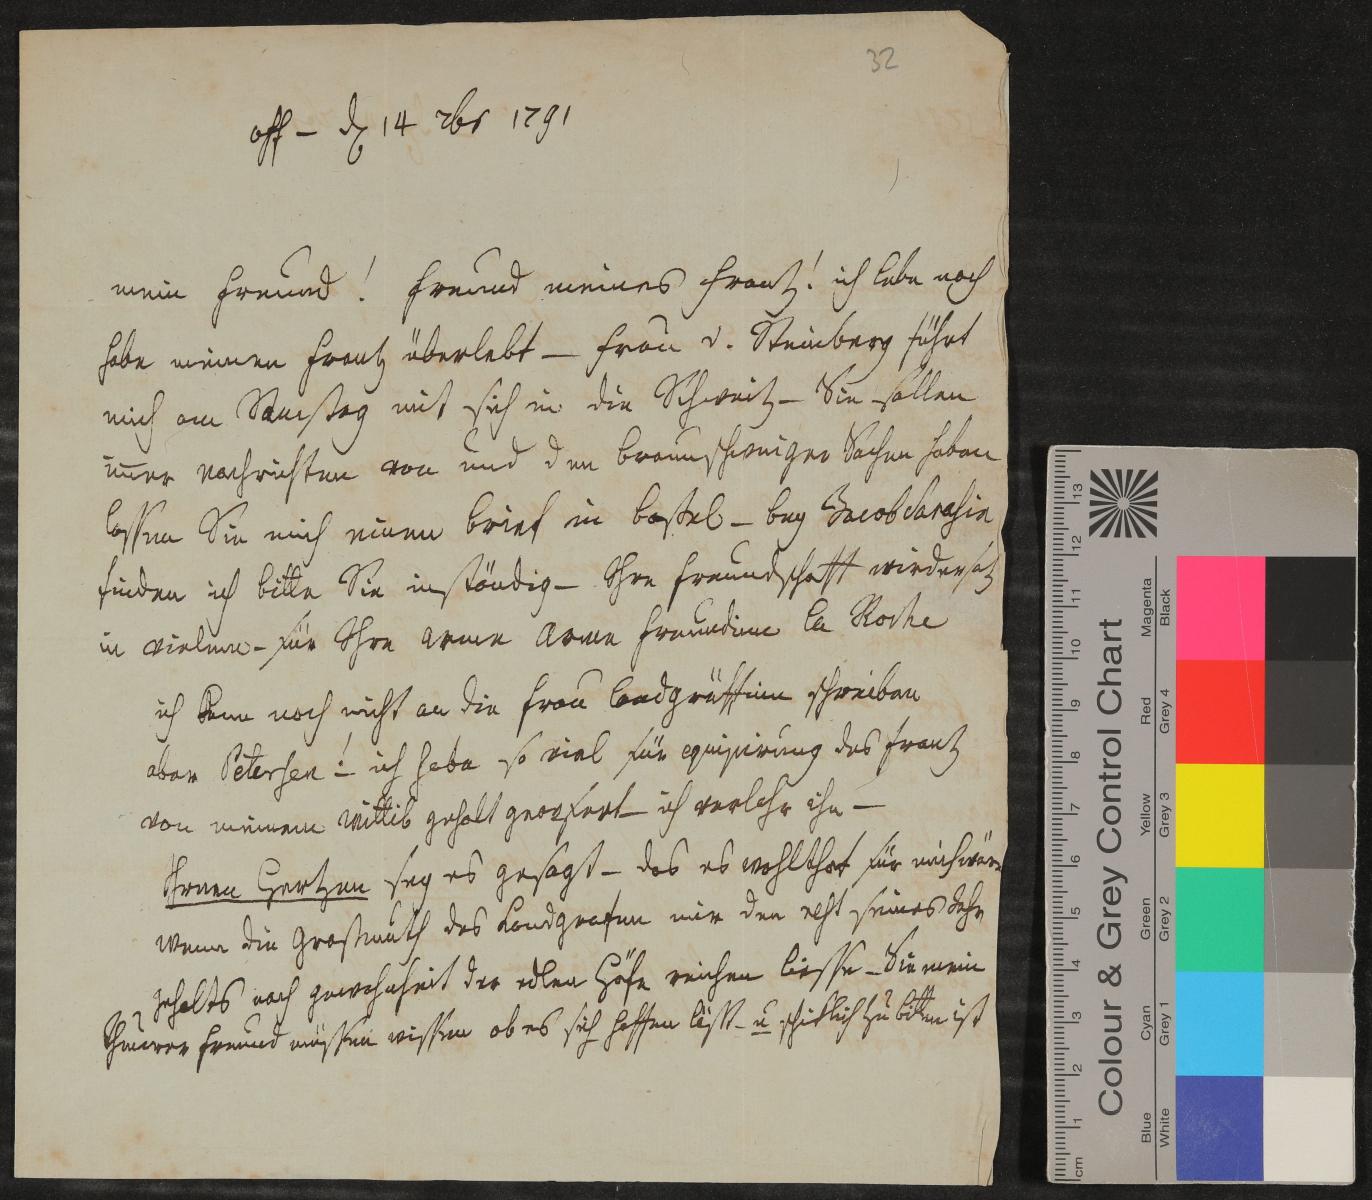 32
off – dh 14 7br 1791
mein Freund! Freund meines Frantz! ich lebe noch
habe meinen Frantz überlebt – Frau v. Steinberg führt
mich am Samstag mit sich in die Schweitz – Sie sollen
im̅er nachrichten von und den braunschweiger Sachen haben
lassen Sie mich einen brief in bassel – bey Jacob Sarasin
finden ich bitte Sie inständig – Ihre Freundschafft
in vielem – für Ihre arme arme Freundinn la Roche
ich kann noch nicht an die Frau landgräffinn schreiben
aber Petersen! – ich habe so viel für equipirung des Frantz
von meinem wittib gehalt geopfert – ich verlohr ihn –
Ihrem Hertzen sey es gesagt – das es wohlthat für mich wäre
wenn die Großmuth des Landgrafen mir den rest seines Jahr
gehalts nach gewohnheit der edlen Höfe reichen liesse – Sie mein
Theurer Freund müssen wissen ob es sich hoffen läßt – u schiklich zu bitten ist
Colour & Grey Control Chart
Blue Cyan Green Yellow Red Magenta
White Grey 1 Grey 2 Grey 3 Grey 4 Black
cm 1 2 3 4 5 6 7 8 9 10 11 12 13